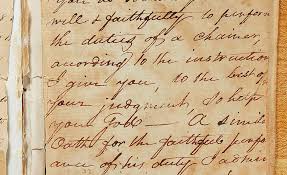 well & faithfully to perform
the duties of a chainer,
according to the instructions
I give you, to the best of
your judgment, So help
you God — A simila
Oath for the faithful perfor
ance of his duty I admin